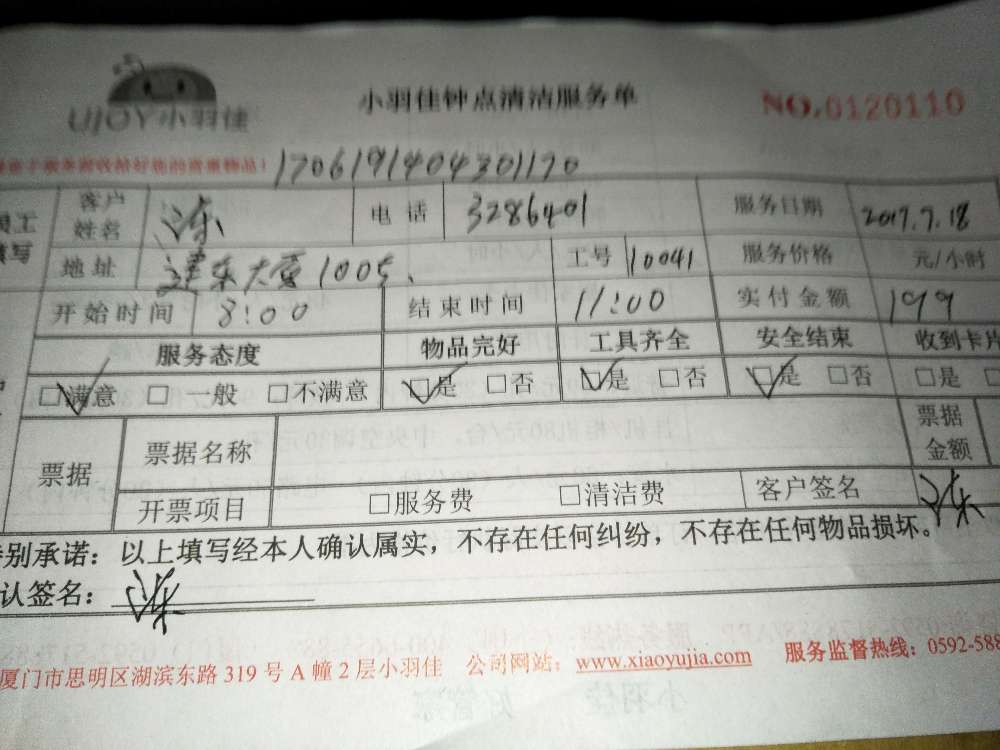 UJOY小羽佳
小羽佳钟点清洁服务单
NO.0120110
1706191404301170
客户姓名 电话 3286401 服务日期 2017.7.18
地址 建东大厦1005 工号 10041 服务价格 元/小时
开始时间 8:00 结束时间 11:00 实付金额 199
服务态度 物品完好 工具齐全 安全结束 收到卡片
☑满意 □一般 □不满意 ☑是 □否 ☑是 □否 ☑是 □否 □是
票据 票据名称 票据金额
开票项目 □服务费 □清洁费 客户签名
特别承诺：以上填写经本人确认属实，不存在任何纠纷，不存在任何物品损坏。
认签名：
厦门市思明区湖滨东路 319 号 A 幢 2 层小羽佳 公司网站：www.xiaoyujia.com 服务监督热线：0592-588